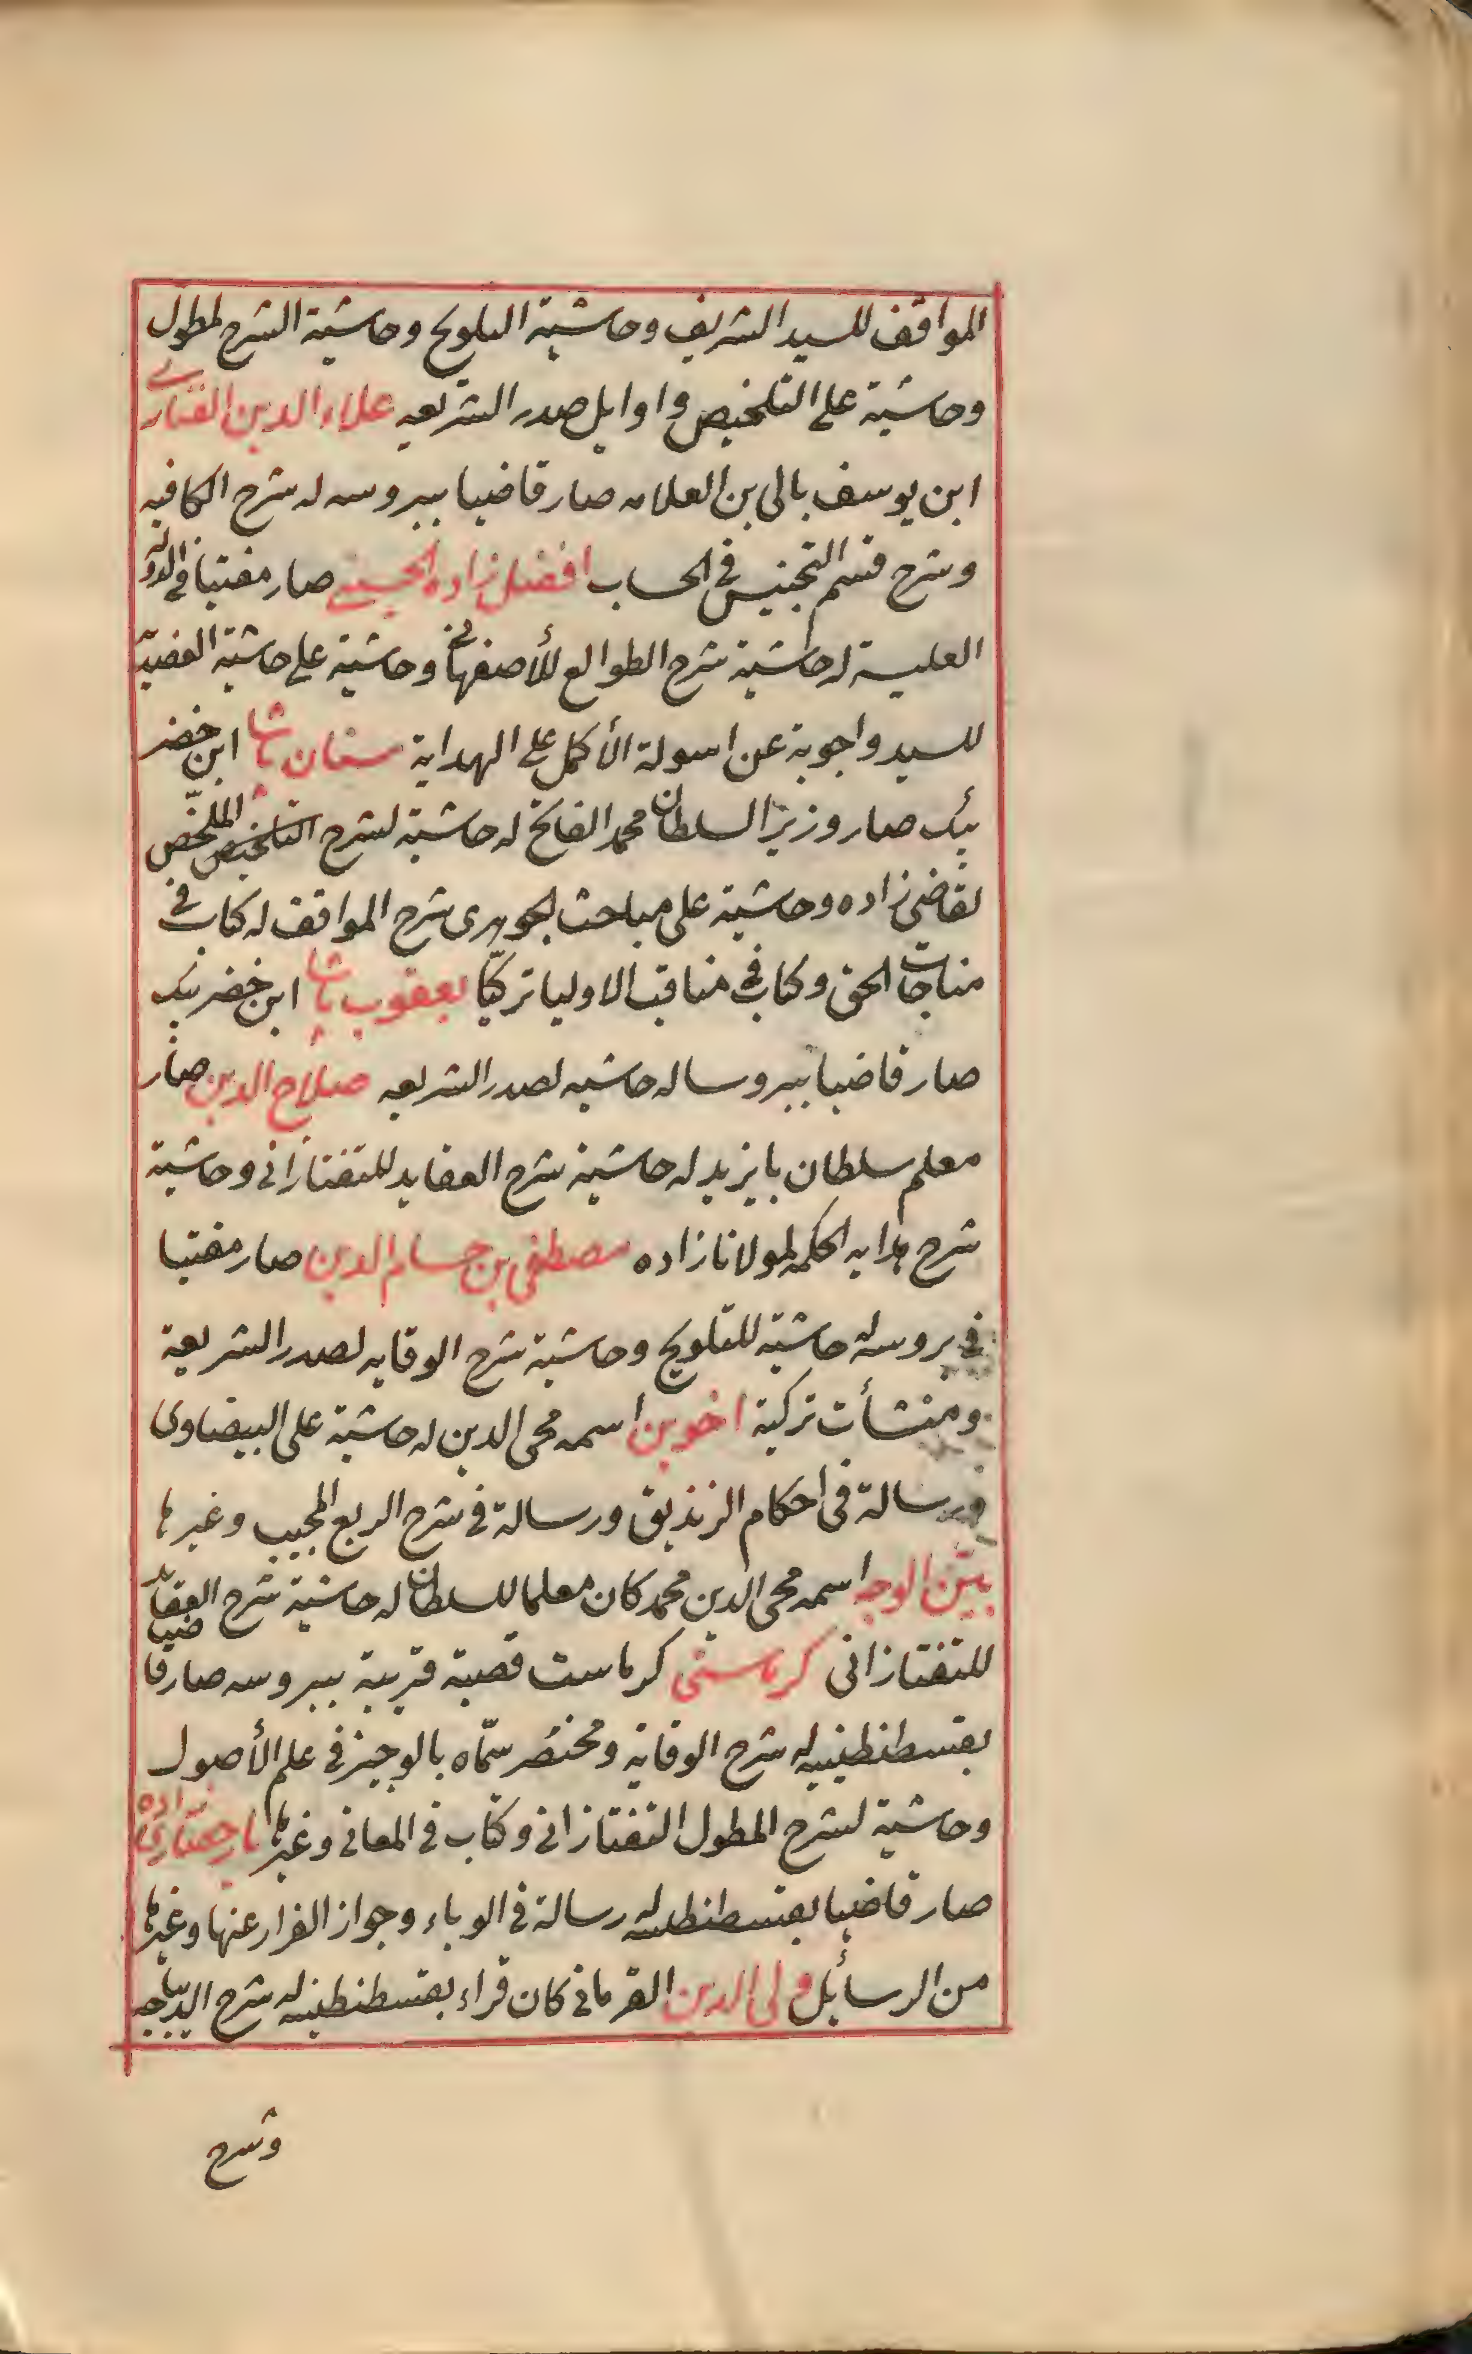 المواقف للسيد الشريف وحاشية التلويح وحاشية الشرح لمطول
وحاشية على التلخيص واوايل صدر الشريعه علاء الدين الفناري
ابن يوسف بالى بن العلامه صار قاضيا ببروسه له شرح الكافيه
وشرح قسم التجنيس فى الحساب افضل زاده الحسيني صار مفتيا فى الدولة
العلية له حاشية شرح الطوالع للأصفهانى وحاشية على حاشية العضد
للسيد واجوبة عن اسولة الأكمل على الهداية سنان پاشا ابن خضر
بيك صار وزير السلطان محمد الفاتح له حاشية لشرح الملخّص
لقاضى زاده وحاشية على مباحث الجوهرى شرح المواقف له كتاب فى
مناجات الحق وكتاب فى مناقب الاوليا تركيّا يعقوب پاشا ابن خضر بيك
صار قاضيا ببروسا له حاشيه لصدر الشريعه صلاح الدين صار
معلم سلطان بايزيد له حاشية شرح العقايد للتفتازانى وحاشية
شرح هدايه الحكمه لمولانا زاده مصطفى بن حسام الدين صار مفتيا
فى بروسه له حاشية للتلويح وحاشية شرح الوقايه لصدر الشريعة
ومنشأت تركية اخوين اسمه محى الدين له حاشية على البيضاوى
ورسالة فى احكام الزنديق ورسالة فى شرح الربع المجيب وغيرها
بيّن الوجه اسمه محى الدين محمد كان معلما للسلطان له حاشية شرح العقايد
للتفتازانى كرماستى كرماست قصبة قريبة ببروسه صار قاضيا
بقسطنطنيه له شرح الوقاية ومختصر سمّاه بالوجيز فى علم الأصول
وحاشية لشرح المطول التفتازانى وكتاب فى المعانى وغيرها زاده
صار قاضيا بقسطنطنيه له رسالة فى الوباء وجواز الفرار عنها وغيرها
من الرسائل ولى الدين القرمانى كان قراء بقسطنطنيه له شرح الديباجه
وشرح